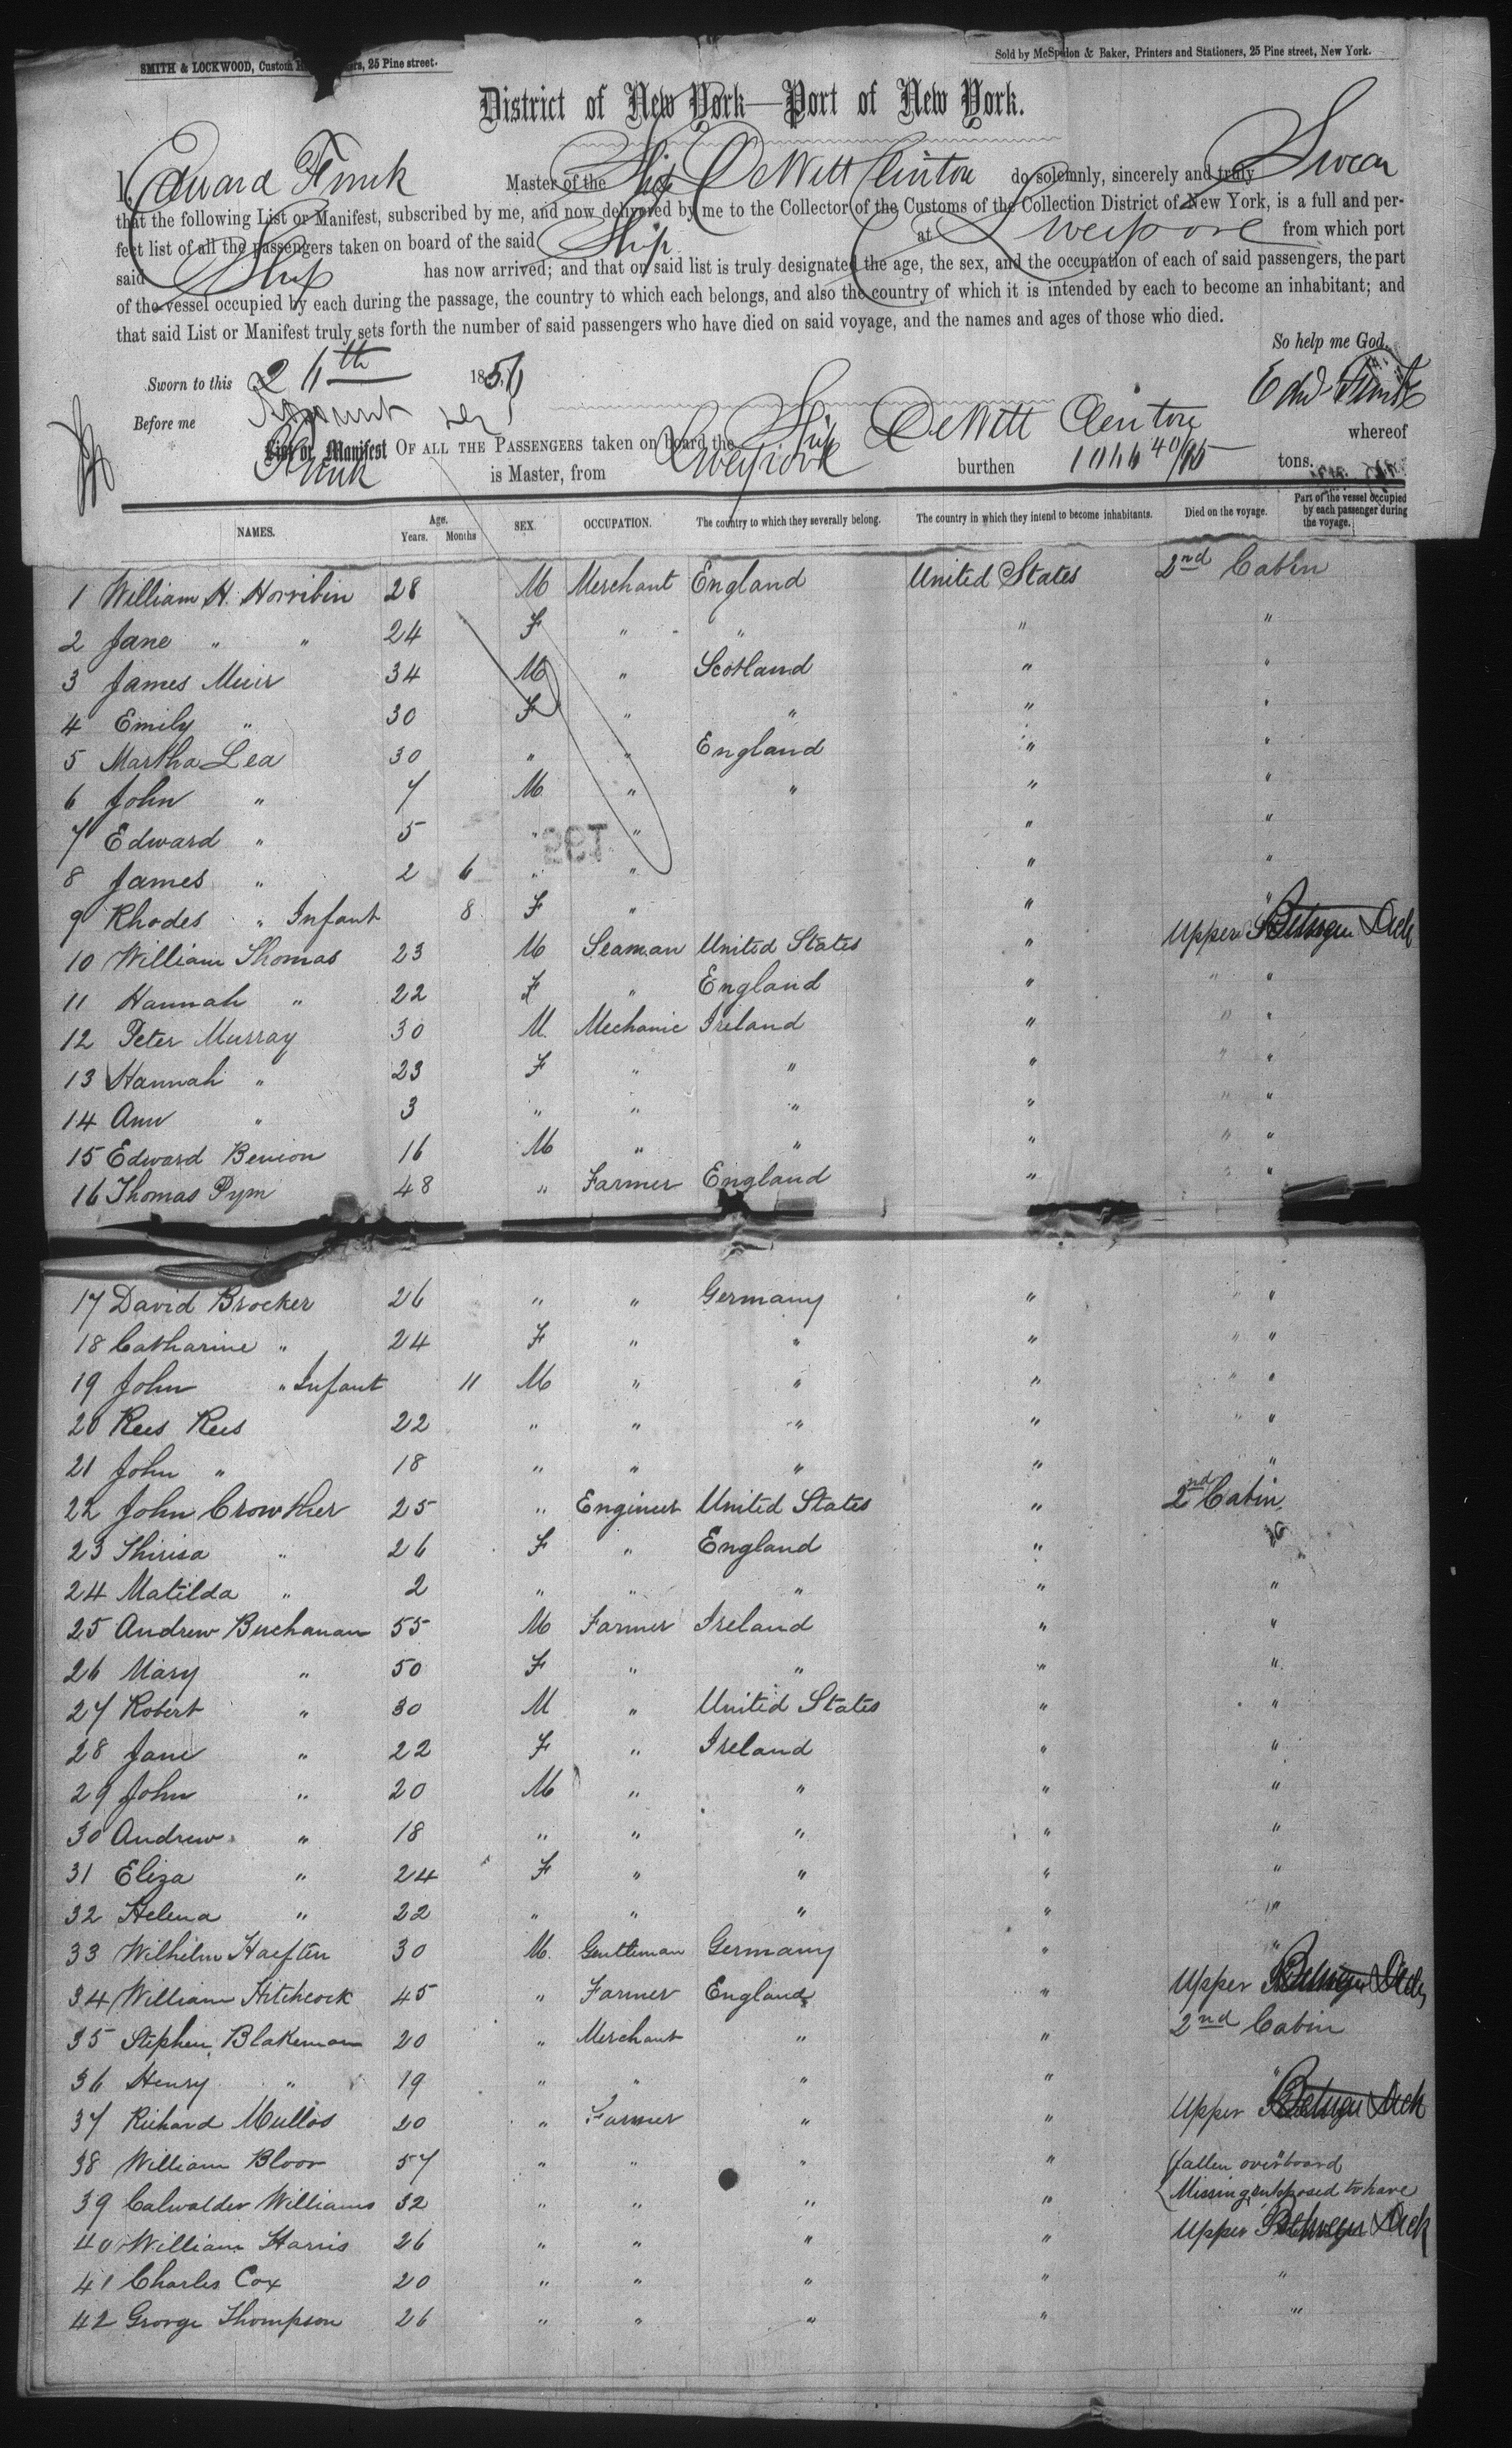 SMITH & LOCKWOOD, Custom rs, 25 Pine street.
Sold by McSpedon & Baker, Printers and Stationers, 25 Pine street, New York.
District of New York—Port of New York.
I, Edward Funk Master of the Ship DeWitt Clinton do solemnly, sincerely and truly Swear
that the following List or Manifest, subscribed by me, and now delivered by me to the Collector of the Customs of the Collection District of New York, is a full and per-
fect list of all the passengers taken on board of the said Ship at Liverpool from which port
said Ship has now arrived; and that on said list is truly designated the age, the sex, and the occupation of each of said passengers, the part
of the vessel occupied by each during the passage, the country to which each belongs, and also the country of which it is intended by each to become an inhabitant; and
that said List or Manifest truly sets forth the number of said passengers who have died on said voyage, and the names and ages of those who died.
So help me God.
Sworn to this th 185 Edw Funk
Before me
List or Manifest OF ALL THE PASSENGERS taken on board the Ship DeWitt Clinton whereof
Funk is Master, from Liverpool burthen tons.
NAMES. Age. Years. Months SEX. OCCUPATION. The country to which they severally belong. The country in which they intend to become inhabitants. Died on the voyage. Part of the vessel occupied by each passenger during the voyage.
1 William H. Horribin 28 M Merchant England United States 2nd Cabin
2 Jane " " 24 F " " " "
3 James Muir 34 M " Scotland " "
4 Emily " 30 F " " " "
5 Martha Lea 30 " " England " "
6 John " 7 M " " " "
7 Edward " 5 " " " "
8 James " 2 6 " " " "
9 Rhodes " Infant 8 F " " "
10 William Thomas 23 M Seaman United States " Upper Between Deck
11 Hannah " 22 F " England " " "
12 Peter Murray 30 M Mechanic Ireland " " "
13 Hannah " 23 F " " " " "
14 Ann " 3 " " " " " "
15 Edward Benion 16 M " " " " "
16 Thomas Pym 48 " Farmer England " " "
17 David Brocker 26 " " Germany " " "
18 Catharine " 24 F " " " " "
19 John " Infant 11 M " " " " "
20 Rees Rees 22 " " " " " "
21 John " 18 " " " " "
22 John Crowther 25 " Engineer United States " 2nd Cabin
23 Thirisa " 26 F " England " "
24 Matilda " 2 " " " " "
25 Andrew Buchanan 55 M Farmer Ireland " "
26 Mary " 50 F " " " "
27 Robert " 30 M " United States " "
28 Jane " 22 F " Ireland " "
29 John " 20 M " " " "
30 Andrew " 18 " " " " "
31 Eliza " 24 F " " " "
32 Helena " 22 " " " " "
33 Wilhelm Haeften 30 M Gentleman Germany " "
34 William Hitchcock 45 " Farmer England " Upper Between Deck
35 Stephen Blakeman 20 " Merchant " " 2nd Cabin
36 Henry " 19 " " " " "
37 Richard Mullos 20 " Farmer " " Upper Between Deck
38 William Bloor 57 " " " " fallen overboard
39 Calwalder Williams 32 " " " " Missing supposed to have
40 William Harris 26 " " " " Upper Between Deck
41 Charles Cox 20 " " " " "
42 George Thompson 26 " " " " "